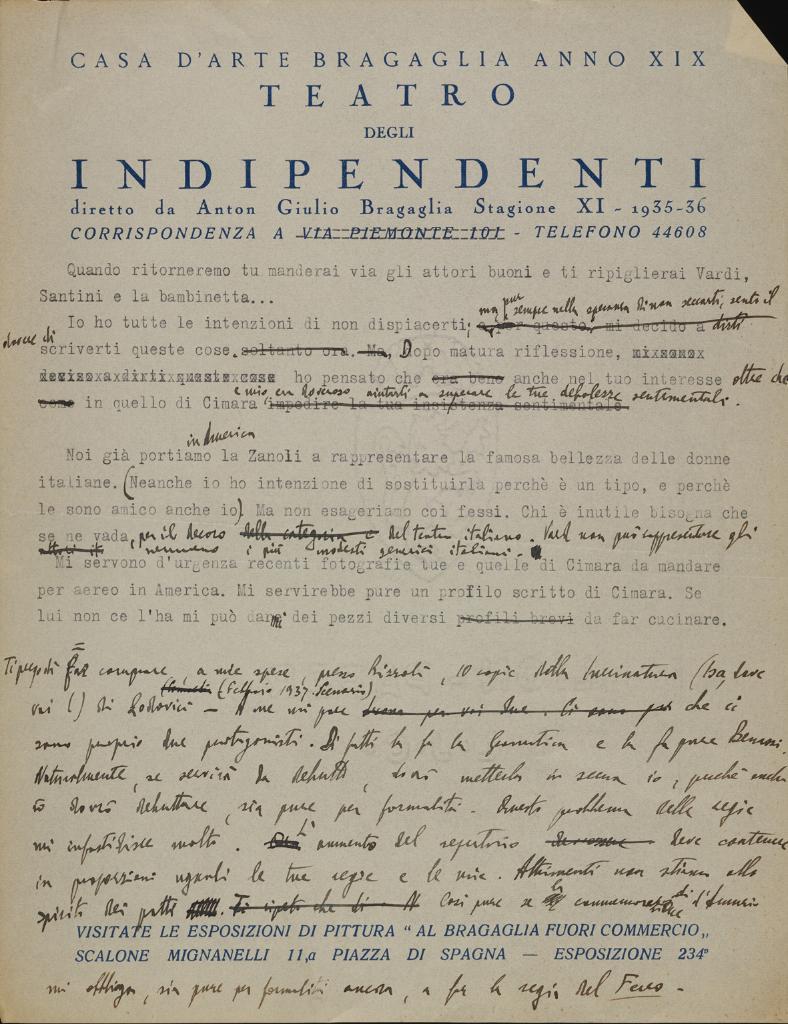 CASA D'ARTE BRAGAGLIA ANNO XIX
TEATRO
DEGLI
INDIPENDENTI
diretto da Anton Giulio Bragaglia Stagione XI - 1935-36
CORRISPONDENZA A VIA PIEMONTE 101 - TELEFONO 44608
Quando ritorneremo tu manderai via gli attori buoni e ti ripiglierai Vardi,
Santini e la bambinetta...
ma pur sempre nella speranza di non seccarti, sento il
Io ho tutte le intenzioni di non dispiacerti; e per questo, mi decido a dirti
dovere di scriverti queste cose soltanto ora. Ma, Dopo matura riflessione,
deciso a dirti queste cose ho pensato che era bene anche nel tuo interesse oltre che
come in quello di Cimara impedire la tua insistenza sentimentale
e mio, era doveroso aiutarti a superare le tue debolezze sentimentali.
in America
Noi già portiamo la Zanoli a rappresentare la famosa bellezza delle donne
italiane. (Neanche io ho intenzione di sostituirla perchè è un tipo, e perchè
le sono amico anche io). Ma non esageriamo coi fessi. Chi è inutile bisogna che
se ne vada, per il decoro della categoria e del teatro italiano. Vardi non può rappresentare gli
nemmeno i più modesti generici italiani.
Mi servono d'urgenza recenti fotografie tue e quelle di Cimara da mandare
per aereo in America. Mi servirebbe pure un profilo scritto di Cimara. Se
lui non ce l'ha mi può darmi dei pezzi diversi profili brevi da far cucinare.
Ti pregodi far comprare, a mie spese, presso Rizzoli, 10 copie della
(Febbraio 1937. Scenario)
voi (!) di Lodovici - A me mi pare buona per voi due. Ci sono per che ci
sono proprio due protagonisti. Di fatti la fa la Gramatica e la fa pure Benassi.
Naturalmente, se servirà da debutto, dovrò metterla in scena io, perchè anche
io dovrò debuttare, sia pure per formalità. Questo problema delle regie
mi infastidisce molto. L'aumento del repertorio deve contenere
in proporzioni uguali le tue regie e le mie. Altrimenti non stiamo allo
spirito dei patti. Ti ripeto che di Così pure se la commemorazione di d'Annunzio
VISITATE LE ESPOSIZIONI DI PITTURA “ AL BRAGAGLIA FUORI COMMERCIO „
SCALONE MIGNANELLI 11,a PIAZZA DI SPAGNA — ESPOSIZIONE 234ª
mi obbliga, sia pure per formalità ancora, a far la regia del Ferro -